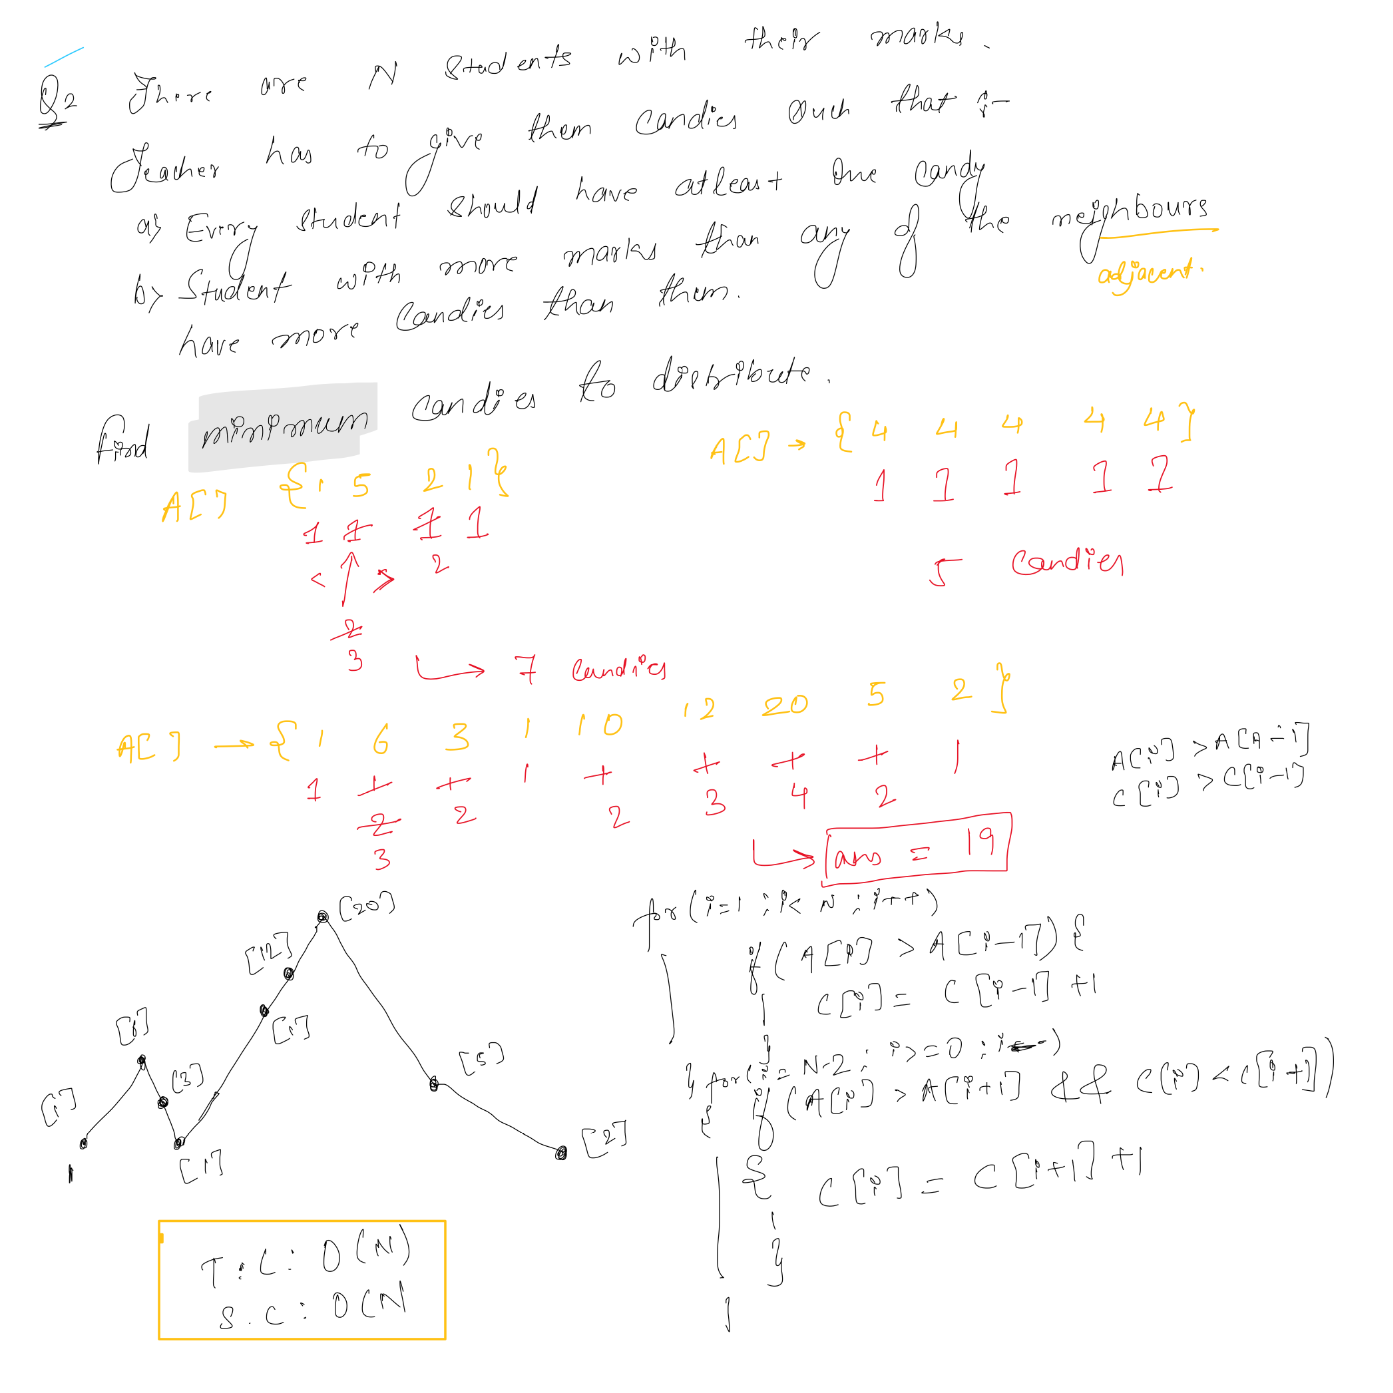 Q2 There are N Students with their marks.
Teacher has to give them Candies Such that :-
a) Every Student Should have atleast One Candy
b) Student with more marks than any of the neighbours
adjacent.
have more Candies than them.
Find minimum Candies to distribute.
A[] {1 5 2 1}
1 1 1 1
< > 2
2
3
7 Candies
A[] → {4 4 4 4 4}
1 1 1 1 1
5 Candies
A[] → {1 6 3 1 10 12 20 5 2}
1 1 1 1 1 1 1 1 1
2 2 2 3 4 2
3
ans = 19
A[i] > A[A-1]
C[i] > C[i-1]
[1] [6] [3] [1] [1] [12] [20] [5] [2]
for(i=1 ; i< N ; i++)
if(A[i] > A[i-1]) {
C[i] = C[i-1] +1
}
} for(i = N-2 ; i>=0 ; i--)
{ if (A[i] > A[i+1] && C[i] < C[i+1])
{
C[i] = C[i+1] +1
}
}
T.C: O(N)
S.C: O(N